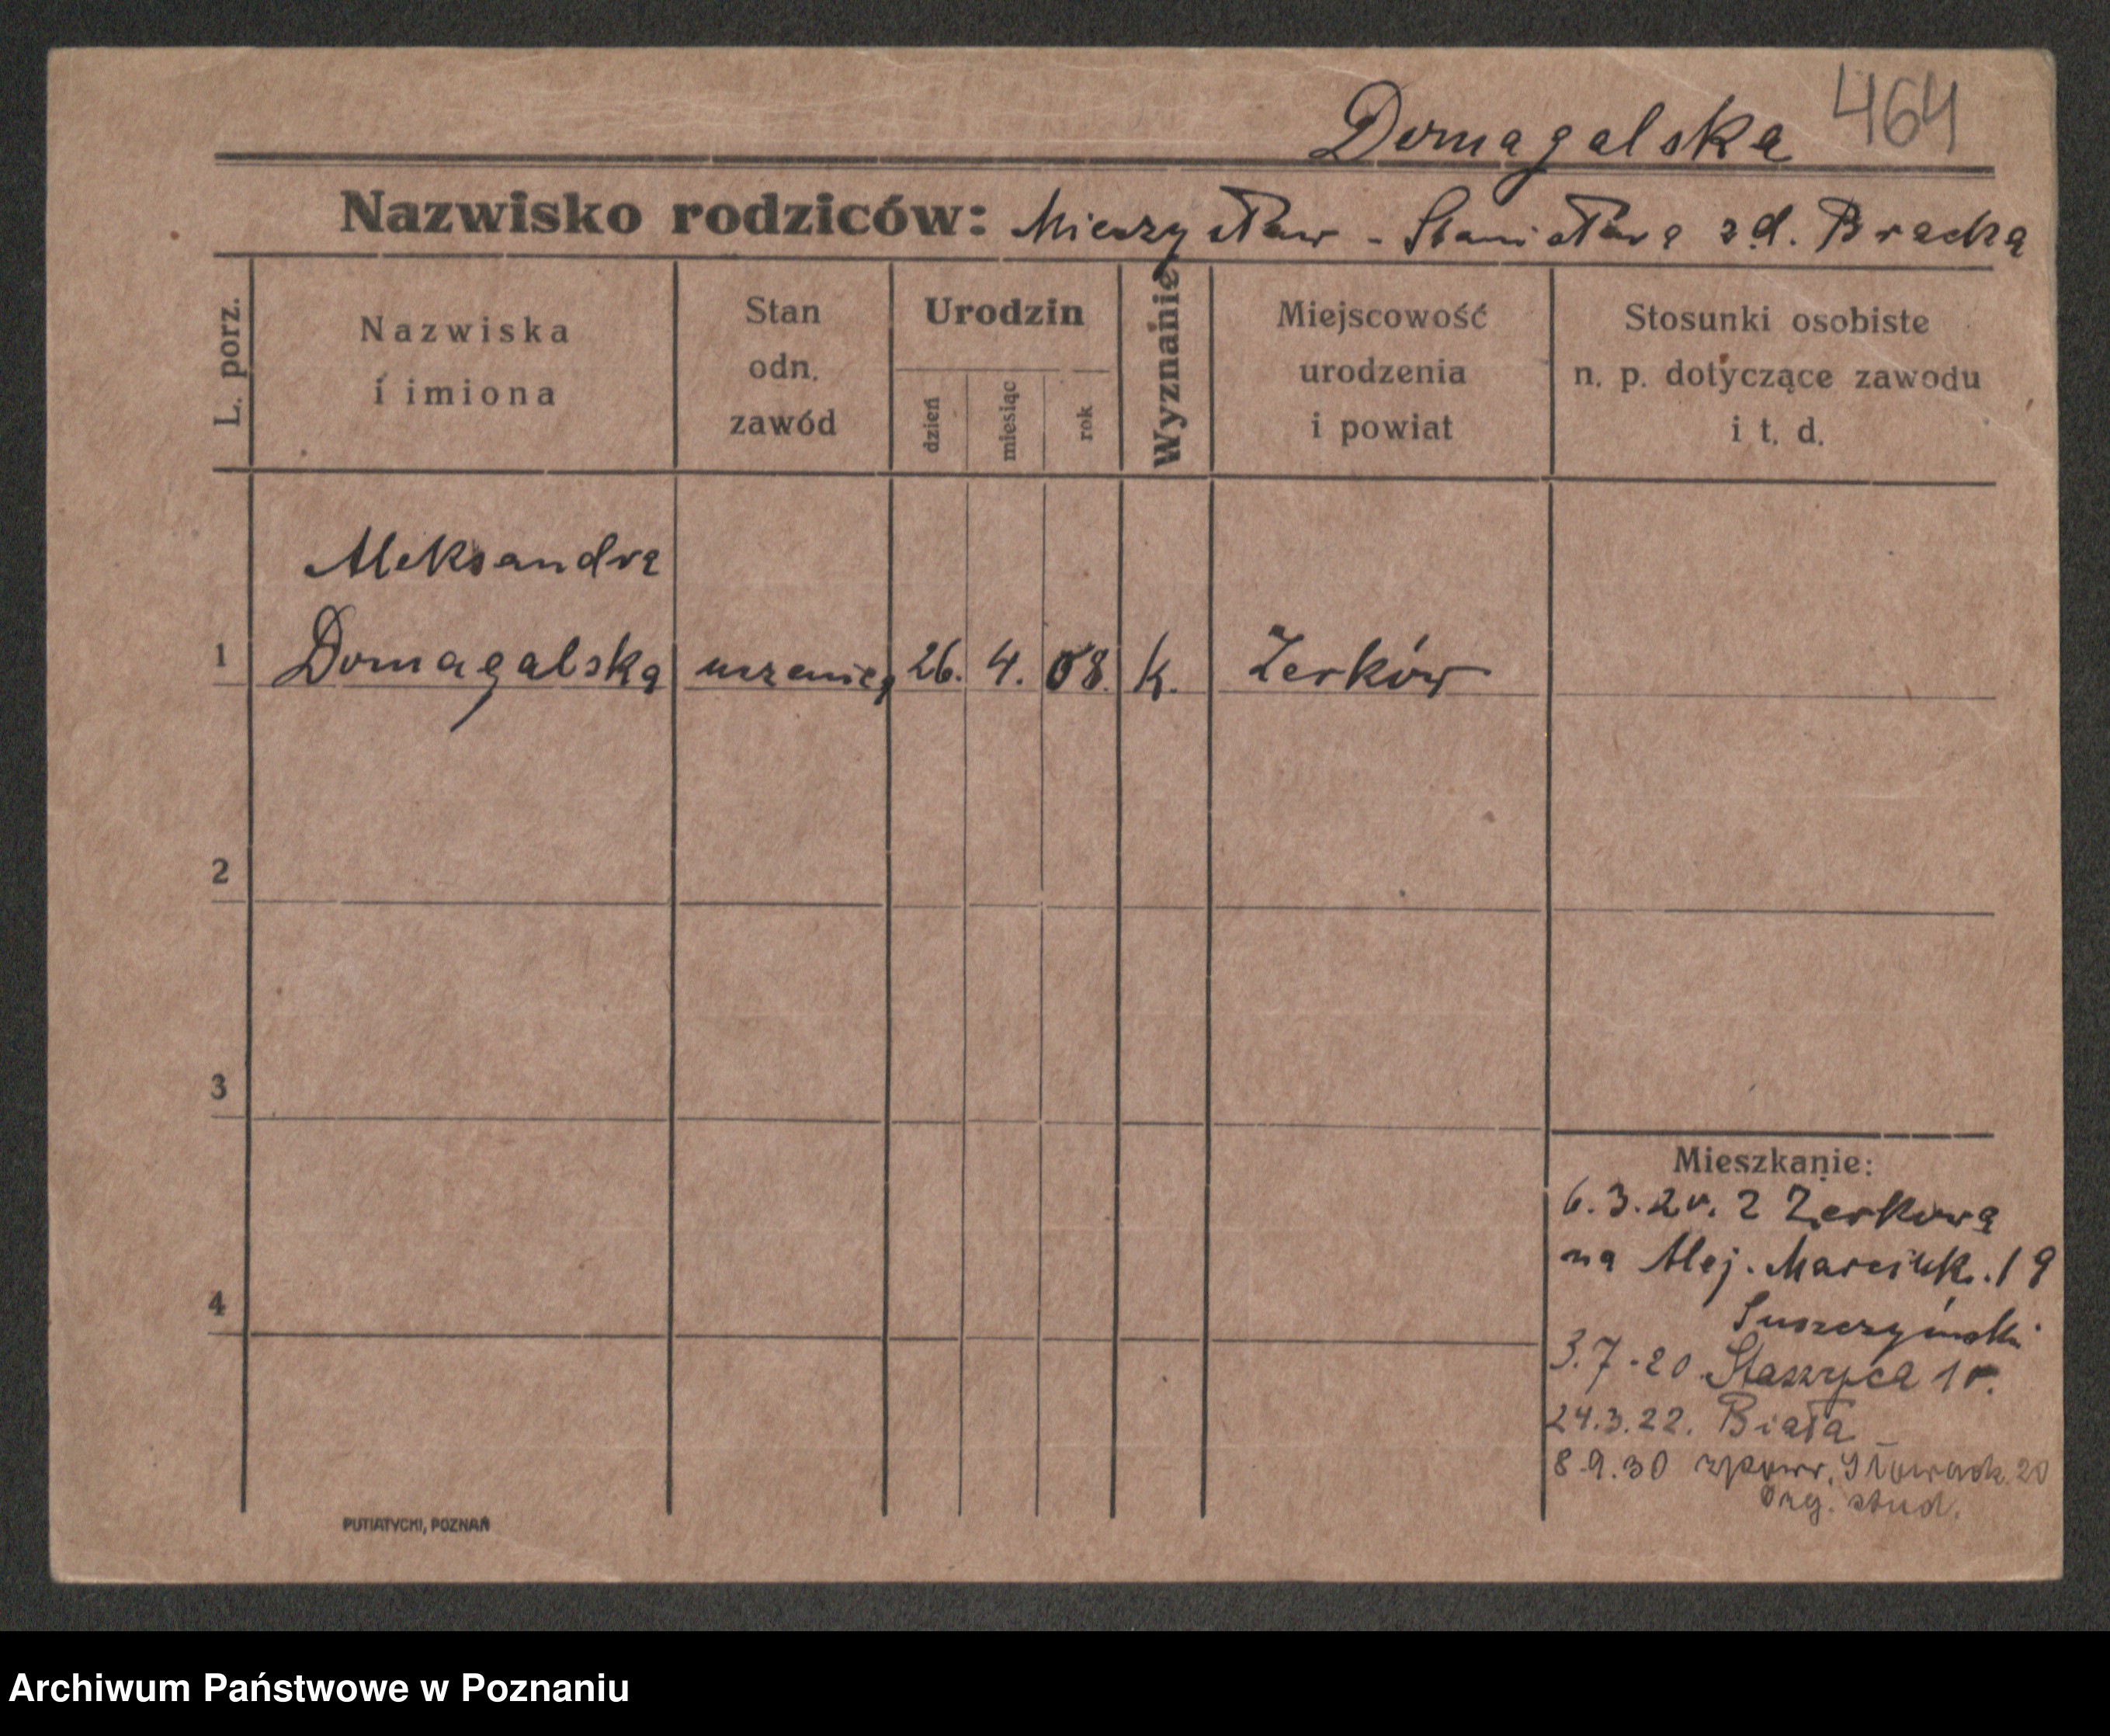 Domagalska 464
Nazwisko rodziców: Mieczysław - Stanisława z d. Bracka
L. porz.
Nazwiska
i imiona
Stan
odn.
zawód
Urodzin
dzień
miesiąc
rok
Wyznanie
Miejscowość
urodzenia
i powiat
Stosunki osobiste
n. p. dotyczące zawodu
i t. d.
Aleksandra
1 Domagalska uczenica 26. 4. 08. k. Żerków
2
3
4
Mieszkanie:
6.3.20. z Żerkowa
na Alej. Marcink. 19
Suszczyński
3.7.20 Staszyca 10.
24.3.22. Biała
8.9.30 zpowr. Słowack. 20
org. stud.
PUTIATYCKI, POZNAŃ
Archiwum Państwowe w Poznaniu